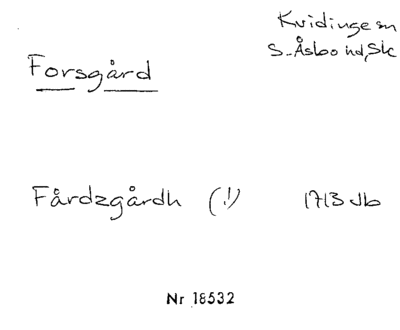 Kvidinge sn
S. Åsbo hd, Sk
Forsgård
Fårdzgårdh (!) 1713 Jb
Nr 18532